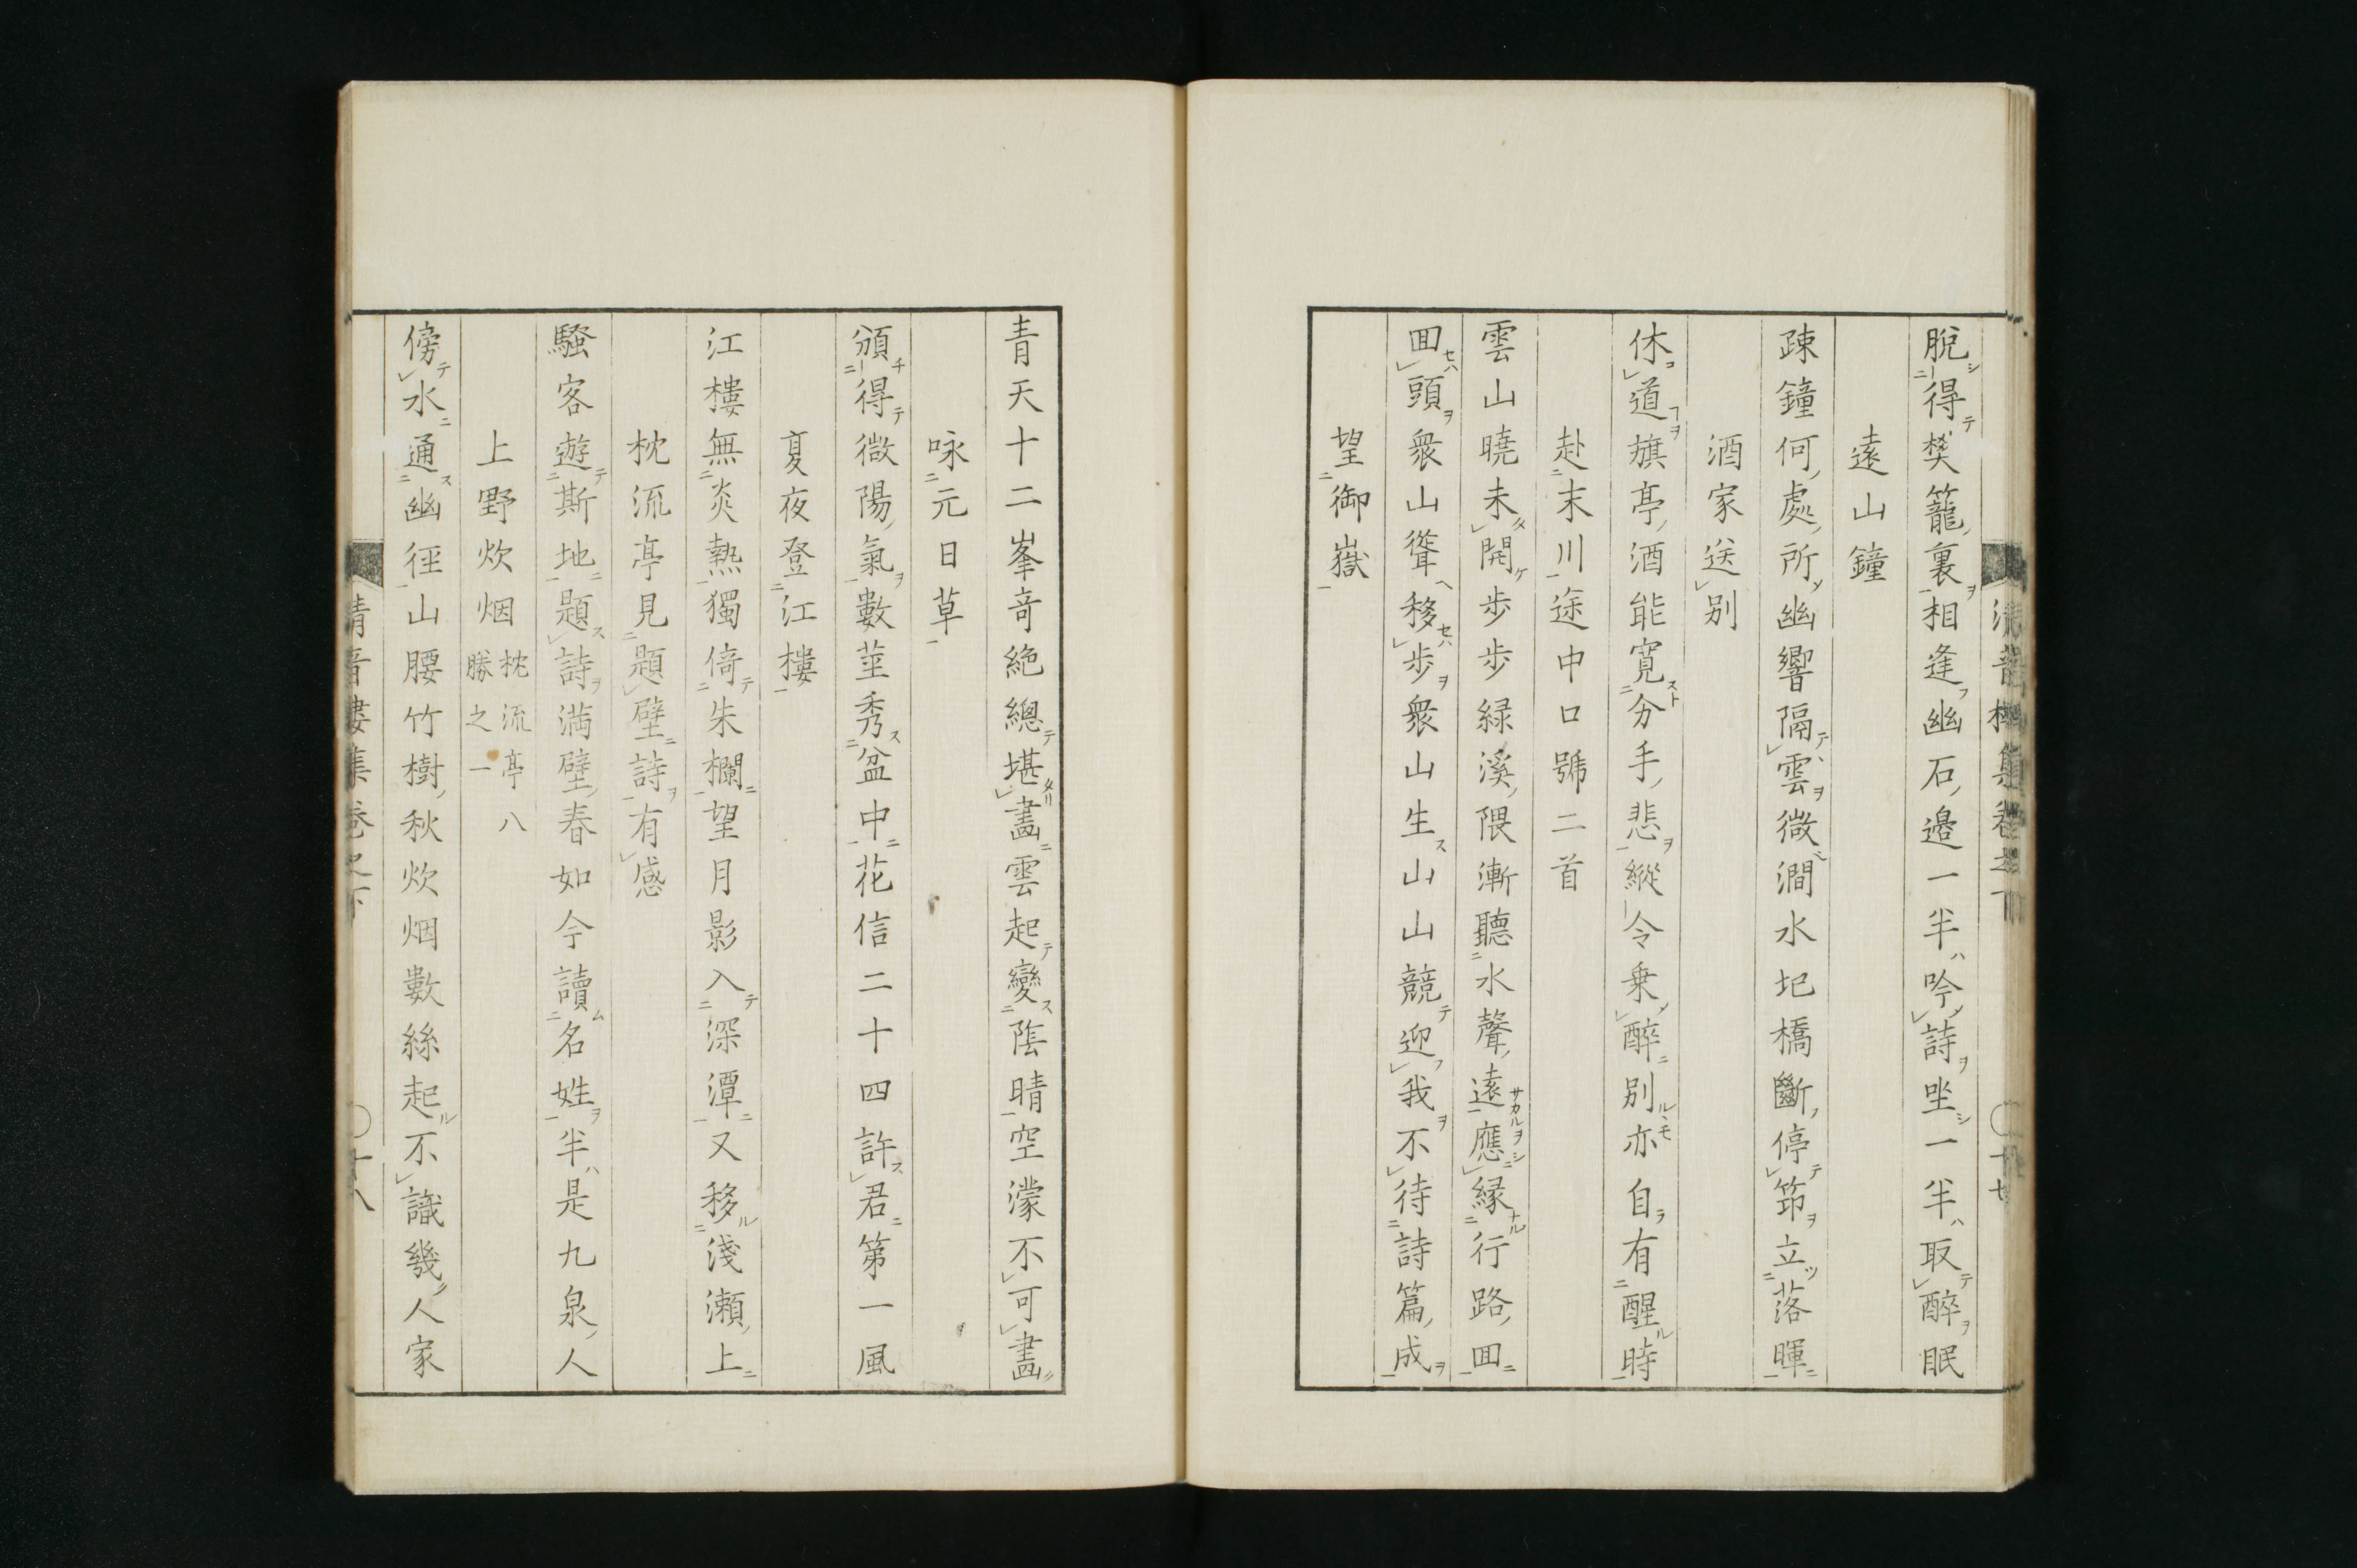 脫得樊籠裏相逢幽石邊一半吟詩坐一半取醉眠
遠山鐘
疎鐘何處所幽響隔雲微澗水圯橋斷停筇立落暉
酒家送别
休道旗亭酒能寬分手悲縱令乗醉別亦自有醒時
赴末川途中口號二首
雲山曉未開步步緑溪隈漸聽水聲遠應縁行路囬
囬頭衆山聳移步衆山生山山競迎我不待詩篇成
望御嶽
青天十二峯竒絶總堪畵雲起變陰晴空濛不可畵
咏元日草
頒得微陽氣數莖秀盆中花信二十四許君第一風
夏夜登江樓
江樓無炎熱獨倚朱欄望月影入深潭又移淺瀬上
枕流亭見題壁詩有感
騷客遊斯地題詩満壁春如今讀名姓半是九泉人
上野炊烟 枕流亭八勝之一
傍水通幽徑山腰竹樹秋炊烟數絲起不識幾人家